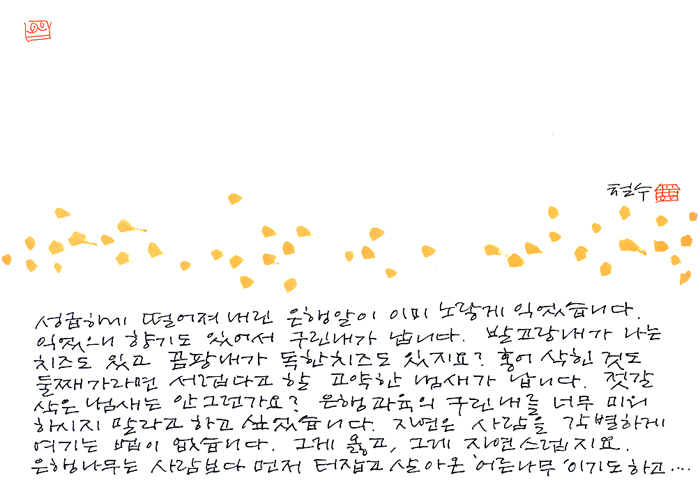 철수
성급하게 떨어져내린 은행알이 이미 노랗게 익었습니다.
익었으니 향기도 있어서 구린내가 납니다. 발고랑내가 나는
치즈도 있고 곰팡내가 독한 치즈도 있지요? 홍어 삭힌 것도
둘째가라면 서럽다고 할 고약한 냄새가 납니다. 젓갈
삭은 냄새는 안 그런가요? 은행 과육의 구린내를 너무 미워
하시지 말라고 하고 싶었습니다. 자연은 사람을 각별하게
여기는 법이 없습니다. 그게 옳고, 그게 자연스럽지요.
은행나무는 사람보다 먼저 터잡고 살아온 '어른나무'이기도 하고....